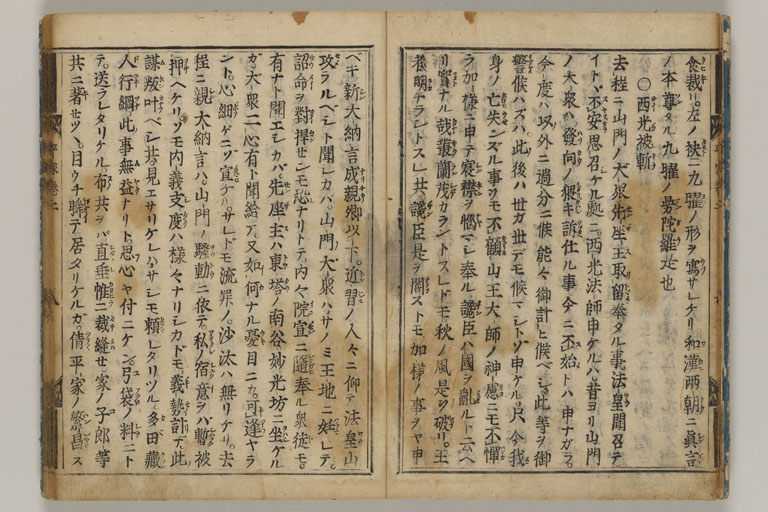 食裁リ。左ノ袂ニ九曜ノ形ヲ寫サレケリ和漢両朝ニ眞言
ノ本尊タル九曜ノ曼陀羅是也
〇西光被斬
去程ニ山門ノ大衆先座主取留奉タル事法皇聞召テ
イトヾ不安思召ケル處ニ西光法師申ケルハ昔ヨリ山門
ノ大衆ハ發向ノ猥キ訴仕ル事今ニ不始トハ申ナガラ。
今度ハ以外ニ過分ニ候能々御計ヒ候ベシ此等ヲ御
警候ハズハ。此後ハ世ガ世デモ候マシトゾ申ケル只今我
身ノ亡失ンズル事ヲモ不顧山王大師ノ神慮ニモ不憚
ラ加様ニ申テ宸襟ヲ惱マシ奉ル讒臣ハ國ヲ亂ルト云ヘ
リ實ナル哉叢蘭茂カラントスレドモ秋ノ風是ヲ破リ。王
者明ナラントスレ共讒臣是ヲ闇ストモ加様ノ事ヲヤ申
ベキ新大納言成親卿以下。近習ノ人々ニ仰テ法皇山
攻ラルベシト聞ヘシカバ。山門ノ大衆ハサノミ王地ニ妊レテ
詔命ヲ對捍センモ恐ナリトテ内々院宣ニ隨奉ル衆徒モ
有ナト聞エシカバ。先座主ハ東塔ノ南谷妙光坊ニ坐ケル
ガ大衆二心有ト聞給テ。又如何ナル憂目ニカ可逢ヤラ
ント。心細ゲニゾ宣ケルサレドモ流罪ノ沙汰ハ無リケリ。去
程ニ親大納言ハ。山門ノ騒動ニ依テ。私ノ宿意ヲハ暫被
押ヘケリゾモ内義支度ハ様々ナリシカドモ。義勢計テ此
謀叛叶ベシ共見エサリケレハ。サシモ頼レタリツル多田藏
人行綱此事無益ナリト思心ヤ付ニケン。弓袋ノ料ニト
テ。送ラレタリケル布共ヲバ直垂帷ニ裁縫セ家ノ子郎等
共ニ著セツヽ。目ウチ瞬テ居タリケルガ。倩平家ノ繁昌ス